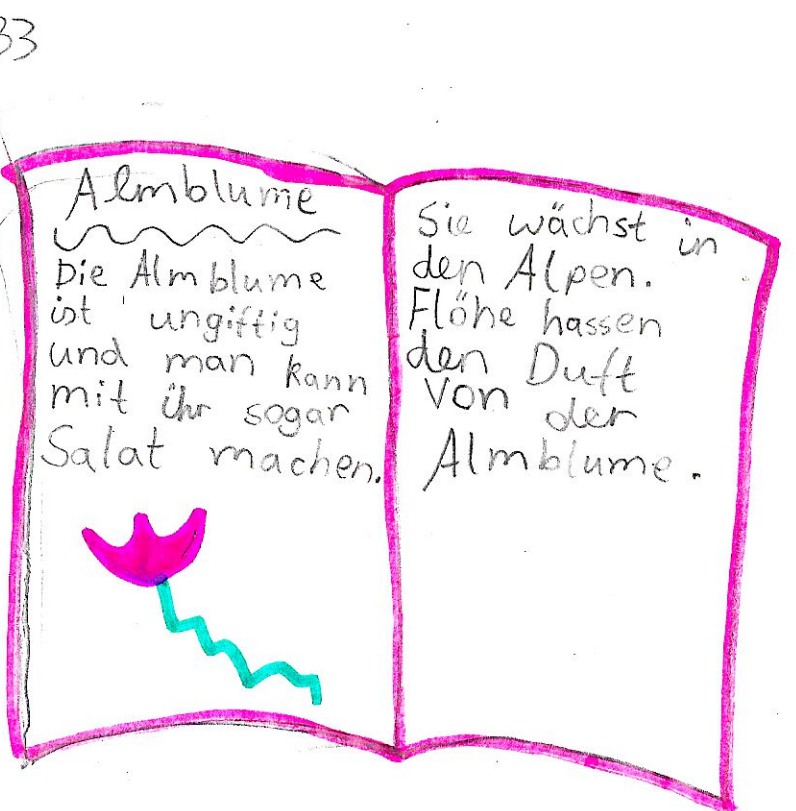 33
Almblume
Die Almblume
ist ungiftig
und man kann
mit ihr sogar
Salat machen.
Sie wächst in
den Alpen.
Flöhe hassen
den Duft
von der
Almblume.